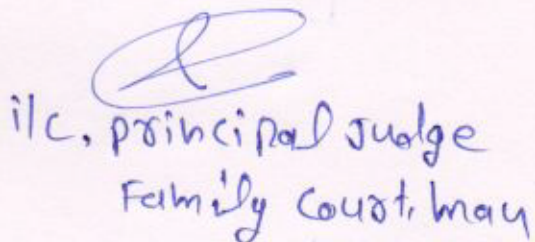 i/c, principal Judge
Family Court, Mau